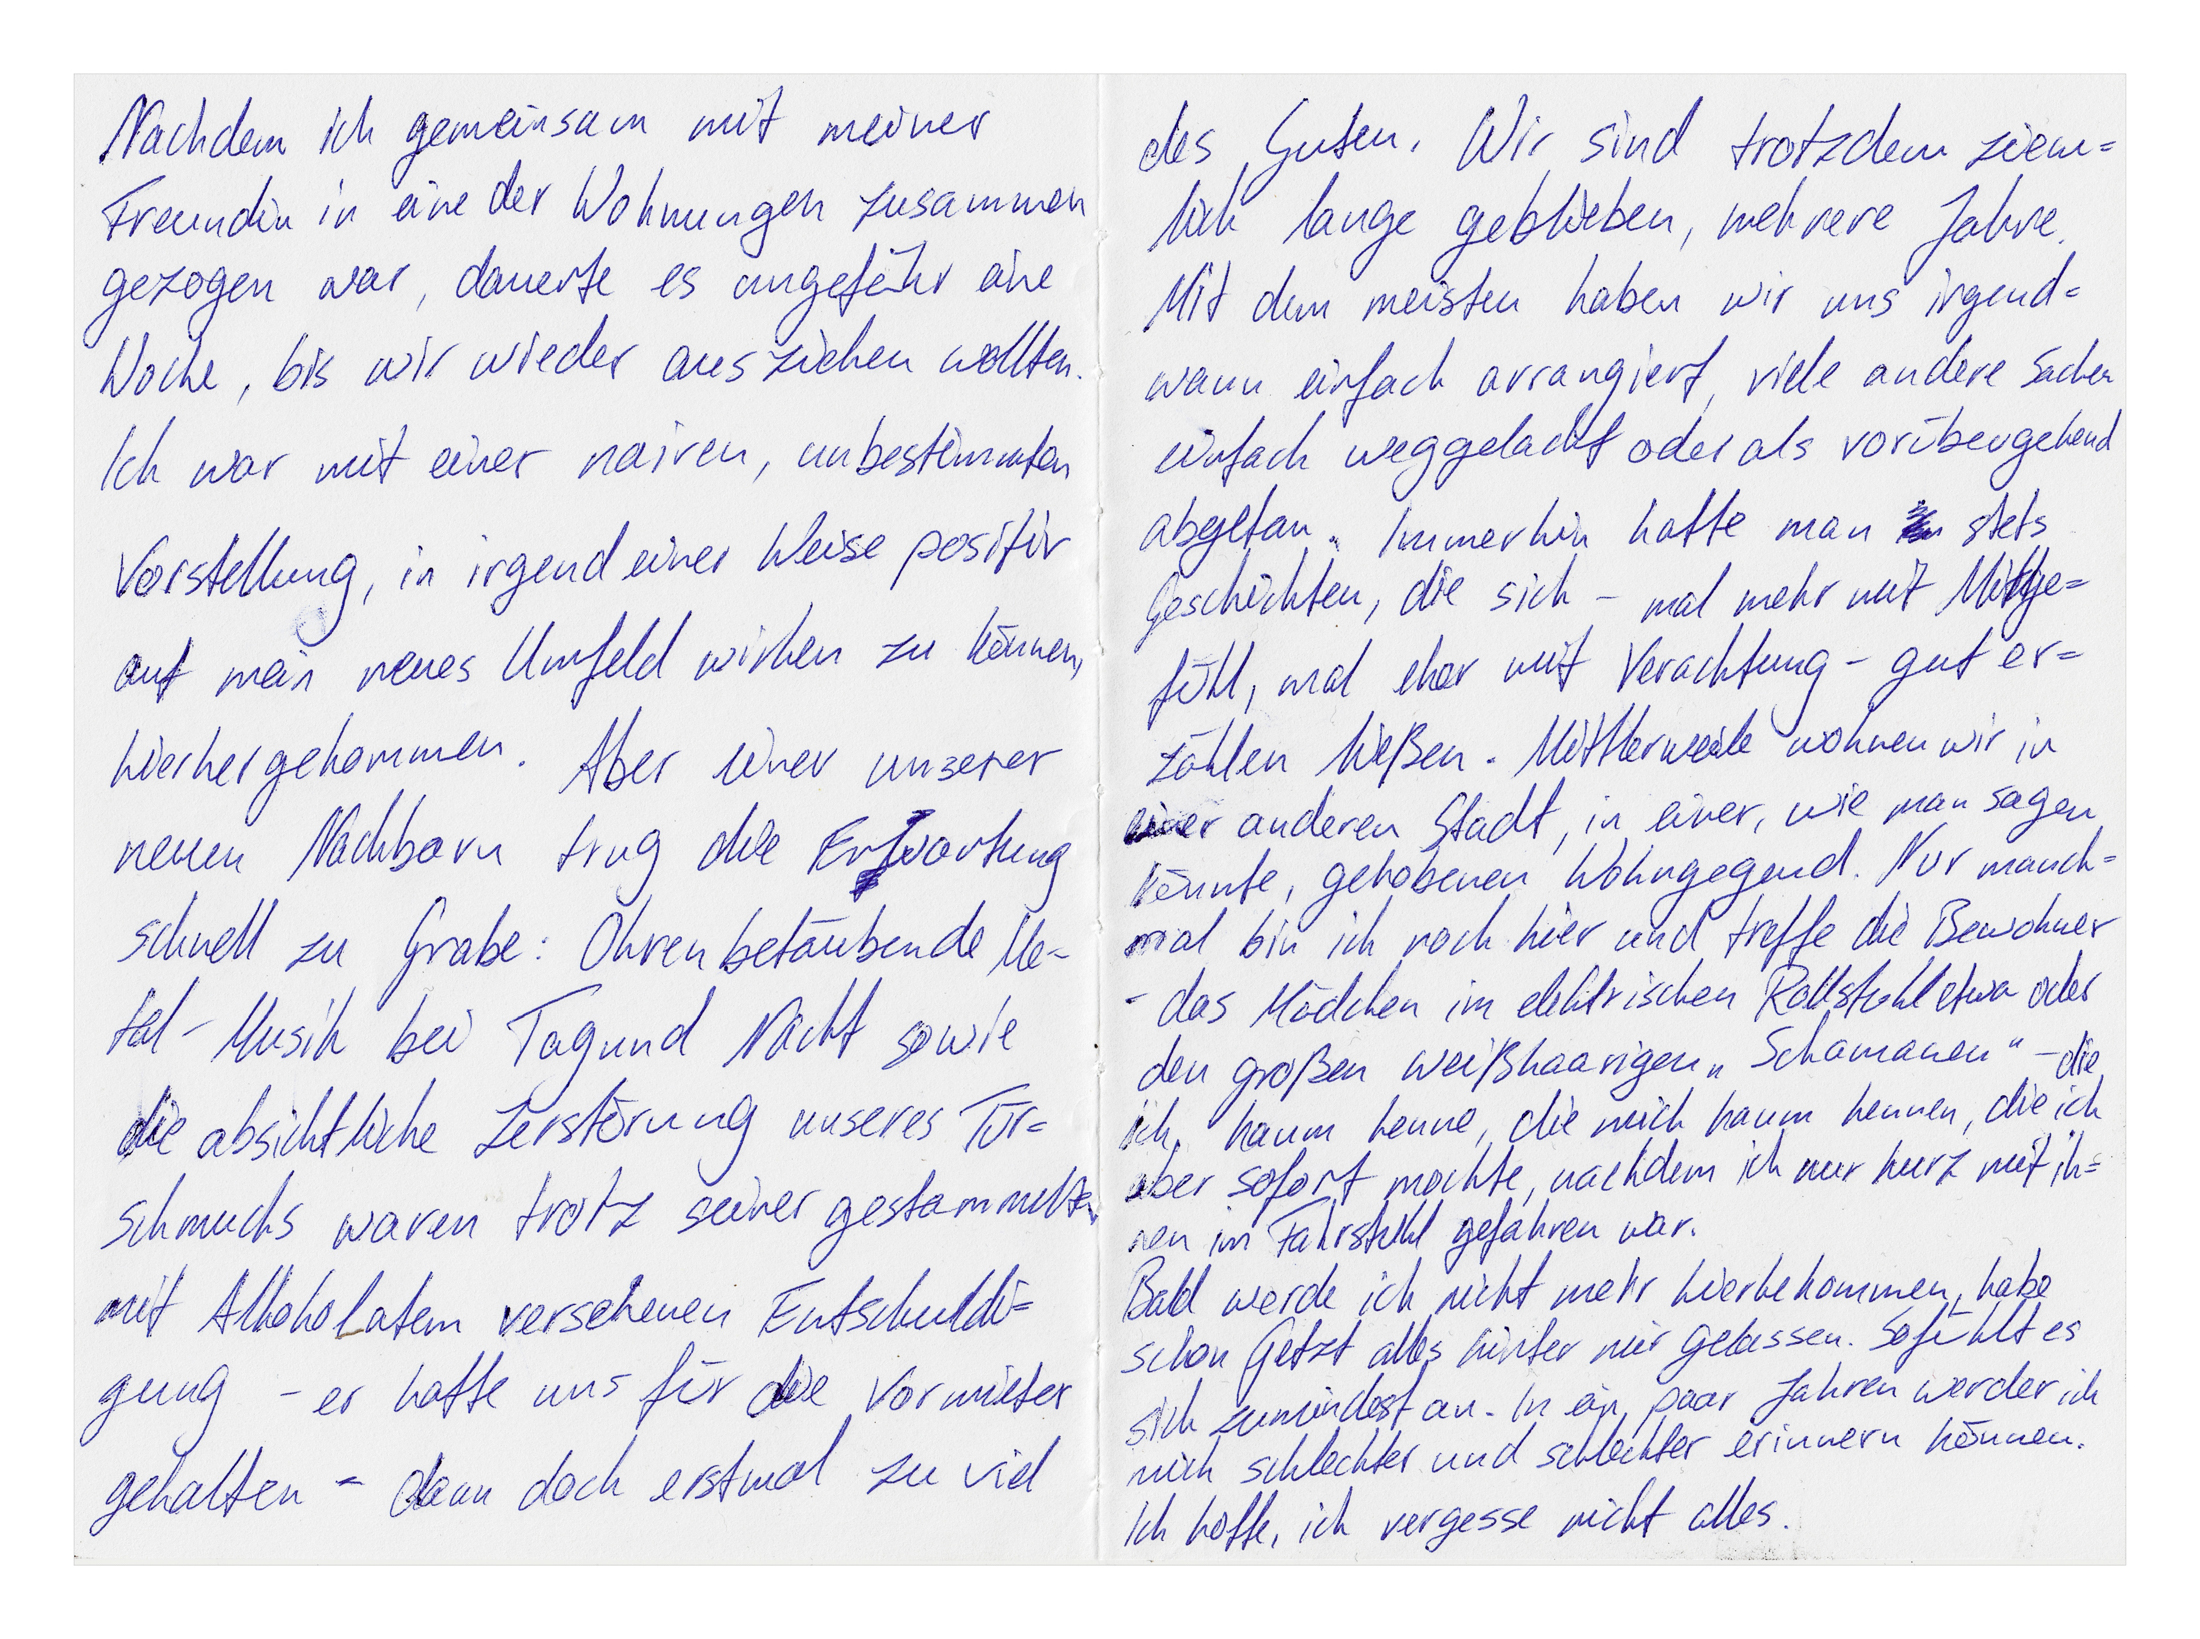 Nachdem ich gemeinsam mit meiner
Freundin in eine der Wohnungen zusammen
gezogen war, dauerte es ungefähr eine
Woche, bis wir wieder ausziehen wollten.
Ich war mit einer naiven, unbestimmten
Vorstellung, in irgend einer Weise positiv
auf mein neues Umfeld wirken zu können,
hierhergekommen. Aber einer unserer
neuen Nachbarn trug die Erwartung
schnell zu Grabe: Ohrenbetäubende Me-
tal-Musik bei Tag und Nacht sowie
die absichtliche Zerstörung unseres Tür=
schmucks waren trotz seiner gestammelten
mit Alkoholatem versehenen Entschuldi=
gung - er hatte uns für die Vormieter
gehalten - dann doch erstmal zu viel
des Guten. Wir sind trotzdem ziem=
lich lange geblieben, mehrere Jahre.
Mit dem meisten haben wir uns irgend=
wann einfach arrangiert, viele andere Sachen
einfach weggelacht oder als vorübergehend
abgetan. Immerhin hatte man stets
Geschichten, die sich - mal mehr mit Mitge=
fühl, mal eher mit Verachtung - gut er=
zählen ließen. Mittlerweile wohnen wir in
einer anderen Stadt, in einer, wie man sagen
könnte, gehobenen Wohngegend. Nur manch=
mal bin ich noch hier und treffe die Bewohner
- das Mädchen im elektrischen Rollstuhl etwa oder
den großen weißhaarigen „Schamanen" - die
ich kaum kenne, die mich kaum kennen, die ich
aber sofort mochte, nachdem ich nur kurz mit ih=
nen im Fahrstuhl gefahren war.
Bald werde ich nicht mehr hierhekommen, habe
schon Jetzt alles hinter mir gelassen. So fühlt es
sich zumindest an. In ein paar Jahren werder ich
mich schlechter und schlechter erinnern können.
Ich hoffe, ich vergesse nicht alles.